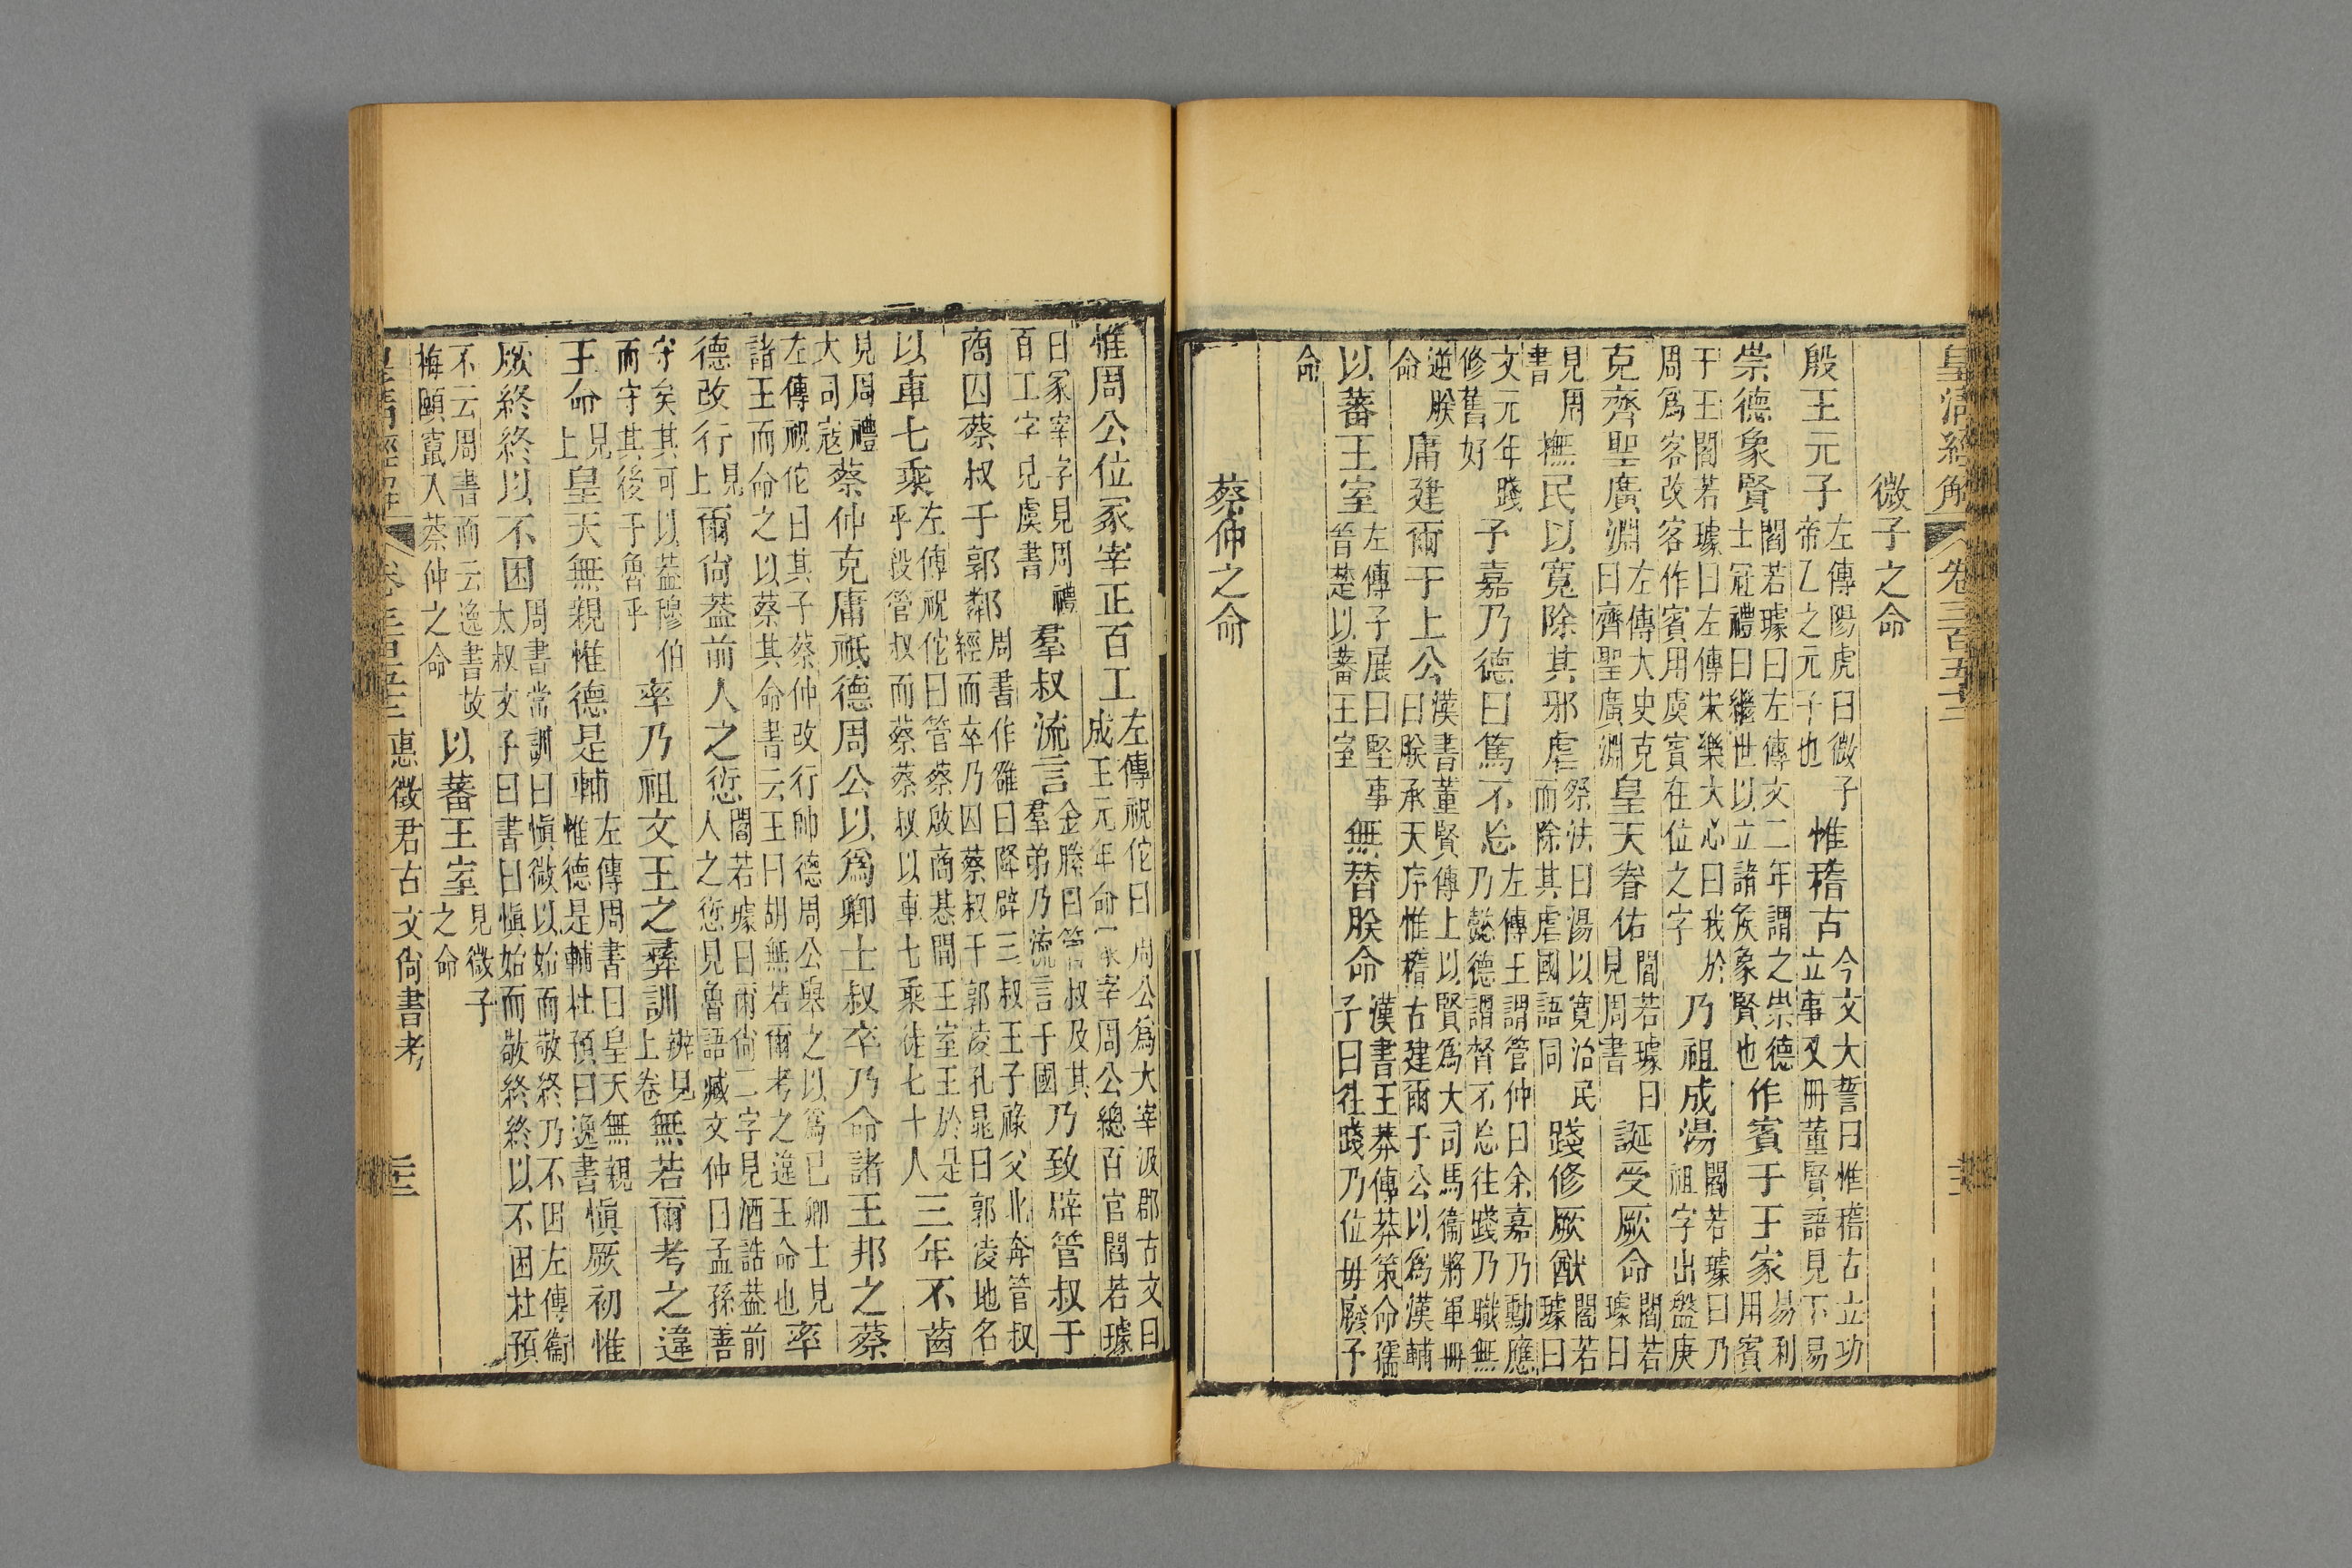 皇清經解 卷三百五十二
微子之命
殷王元子左傳陽虎曰微子帝乙之元子也惟稽古今文大誓曰惟稽古立功立事又冊董賢語見下易
崇德象賢閻若璩曰左傳文二年謂之崇德士冠禮曰繼世以立諸侯象賢也作賓于王家易利用賓
于王閻若璩曰左傳宋樂大心曰我於周爲客改客作賓用虞賓在位之字乃祖成湯閻若璩曰乃祖字出盤庚
克齊聖廣淵左傳大史克曰齊聖廣淵皇天眷佑閻若璩曰見周書誕受厥命閻若璩曰
見周書撫民以寬除其邪虐祭法曰湯以寬治民而除其虐國語同踐修厥猷閻若璩曰
文元年踐修舊好予嘉乃德曰篤不忘左傳王謂管仲曰余嘉乃勳應乃懿德謂督不忘往踐乃職無
逆朕命庸建爾于上公漢書董賢傳上以賢爲大司馬衞將軍冊曰朕承天序惟稽古建爾于公以爲漢輔
以蕃王室左傳子展曰堅事晉楚以蕃王室無替朕命漢書王莽傳莽策命孺子曰往踐乃位毋廢予
命
蔡仲之命
惟周公位冢宰正百工左傳祝佗曰周公爲大宰汲郡古文曰成王元年命冢宰周公總百官閻若璩
曰冢宰字見周禮百工字見虞書羣叔流言金縢曰管叔及其羣弟乃流言于國乃致辟管叔于
商囚蔡叔于郭鄰周書作雒曰降辟三叔王子祿父北奔管叔經而卒乃囚蔡叔于郭淩孔晁曰郭淩地名
以車七乘左傳祝佗曰管蔡啟商惎間王室王於是乎殺管叔而蔡蔡叔以車七乘徒七十人三年不齒
見周禮大司寇蔡仲克庸祇德周公以爲卿士叔卒乃命諸王邦之蔡
左傳祝佗曰其子蔡仲改行帥德周公舉之以爲己卿士見諸王而命之以蔡其命書云王曰胡無若爾考之違王命也率
德改行見上爾尚蓋前人之愆閻若璩曰爾尚二字見酒誥蓋前人之愆見魯語臧文仲曰孟孫善
守矣其可以蓋穆伯而守其後于魯乎率乃祖文王之彝訓辨見上卷無若爾考之違
王命見上皇天無親惟德是輔左傳周書曰皇天無親惟德是輔杜預曰逸書愼厥初惟
厥終終以不困周書常訓曰愼微以始而敬終乃不困左傳衞太叔文子曰書曰愼始而敬終終以不困杜預
不云周書而云逸書故梅頤竄入蔡仲之命以蕃王室見微子之命
皇清經解 卷三百五十二 惠徵君古文尚書考